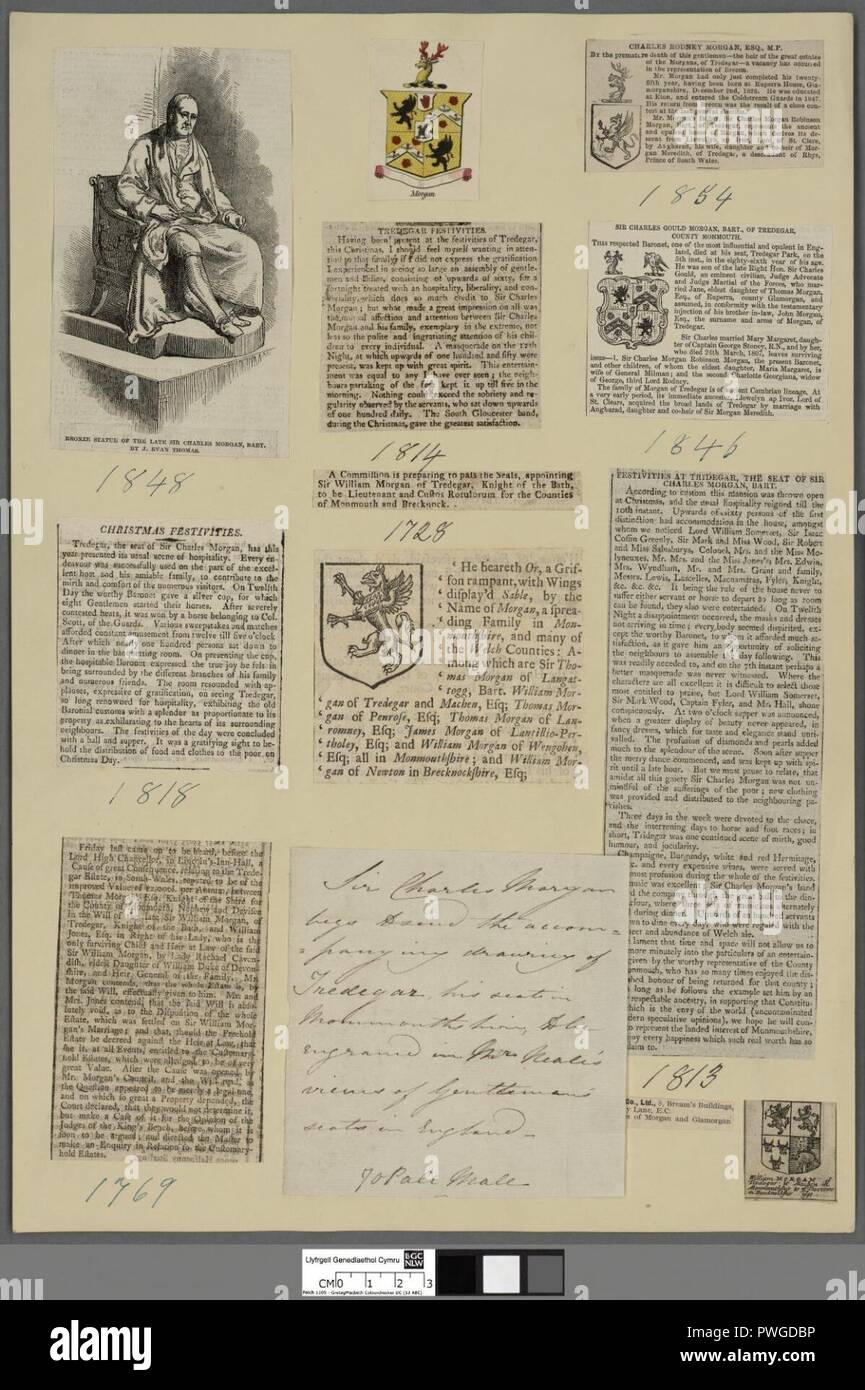 BRONZE STATUE OF THE LATE SIR CHARLES MORGAN, BART.
BY J. EVAN THOMAS.
1848
Morgan
CHARLES RODNEY MORGAN, ESQ., M.P.
By the premature death of this gentleman—the heir of the great estates
of the Morgans, of Tredegar—a vacancy has occurred
in the representation of Brecon.
Mr. Morgan had only just completed his twenty-
fifth year, having been born at Ruperra House, Gla-
morganshire, December 2nd, 1828. He was educated
at Eton, and entered the Coldstream Guards in 1847.
His return from Brecon was the result of a close con-
test at the
Mr. Morgan Robinson
Morgan, the ancient
and its de-
scent from St. Clere,
by Angharad, his wife, daughter and co-heir of Mor-
gan Meredith, of Tredegar, a descendant of Rhys,
Prince of South Wales.
1854
TREDEGAR FESTIVITIES.
Having been present at the festivities of Tredegar,
this Christmas, I should feel myself wanting in atten-
tion to that family if I did not express the gratification
I experienced in seeing so large an assembly of gentle-
men and ladies, consisting of upwards of sixty, for a
fortnight treated with an hospitality, liberality, and con-
viviality, which does so much credit to Sir Charles
Morgan; but what made a great impression on all was
the mutual affection and attention between Sir Charles
Morgan and his family, exemplary in the extreme, not
less so the polite and ingratiating attention of his chil-
dren to every individual. A masquerade on the 12th
Night, at which upwards of one hundred and fifty were
present, was kept up with great spirit. This entertain-
ment was equal to any I have ever seen; the neigh-
bours partaking of the fete kept it up till five in the
morning. Nothing could exceed the sobriety and re-
gularity observed by the servants, who sat down upwards
of one hundred daily. The South Gloucester band,
during the Christmas, gave the greatest satisfaction.
1814
SIR CHARLES GOULD MORGAN, BART., OF TREDEGAR,
COUNTY MONMOUTH.
This respected Baronet, one of the most influential and opulent in Eng-
land, died at his seat, Tredegar Park, on the
5th inst., in the eighty-sixth year of his age.
He was son of the late Right Hon. Sir Charles
Gould, an eminent civilian, Judge Advocate
and Judge Martial of the Forces, who mar-
ried Jane, eldest daughter of Thomas Morgan,
Esq., of Ruperra, county Glamorgan, and
assumed, in conformity with the testamentary
injection of his brother in-law, John Morgan,
Esq., the surname and arms of Morgan, of
Tredegar.
Sir Charles married Mary Margaret, daugh-
ter of Captain George Stoney, R.N., and by her,
who died 24th March, 1807, leaves surviving
issue—1. Sir Charles Morgan Robinson Morgan, the present Baronet,
and other children, of whom the eldest daughter, Maria Margaret, is
wife of General Milman; and the second Charlotte Georgiana, widow
of George, third Lord Rodney.
The family of Morgan of Tredegar is of ancient Cambrian lineage. At
a very early period, its immediate ancestor, Llewelyn ap Ivor, Lord of
St. Clears, acquired the broad lands of Tredegar by marriage with
Angharad, daughter and co-heir of Sir Morgan Meredith.
1846
A Commission is preparing to pass the Seals, appointing
Sir William Morgan of Tredegar, Knight of the Bath,
to be Lieutenant and Custos Rotulorum for the Counties
of Monmouth and Brecknock.
1728
CHRISTMAS FESTIVITIES.
Tredegar, the seat of Sir Charles Morgan, has this
year presented its usual scene of hospitality. Every en-
deavour was successfully used on the part of the excel-
lent host and his amiable family, to contribute to the
mirth and comfort of the numerous visitors. On Twelfth
Day the worthy Baronet gave a silver cup, for which
eight Gentlemen started their horses. After severely
contested heats, it was won by a horse belonging to Col.
Scott, of the Guards. Various sweepstakes and matches
afforded constant amusement from twelve till five o'clock
After which near one hundred persons sat down to
dinner in the banqueting room. On presenting the cup,
the hospitable Baronet expressed the true joy he felt in
being surrounded by the different branches of his family
and numerous friends. The room resounded with ap-
plauses, expressive of gratification, on seeing Tredegar,
so long renowned for hospitality, exhibiting the old
Baronial customs with a splendor as proportionate to its
property as exhilarating to the hearts of its surrounding
neighbours. The festivities of the day were concluded
with a ball and supper. It was a gratifying sight to be-
hold the distribution of food and clothes to the poor on
Christmas Day.
1818
' He beareth Or, a Grif-
' fon rampant, with Wings
' display'd Sable, by the
' Name of Morgan, a sprea-
' ding Family in Mon-
' mouthshire, and many of
' the Welch Counties: A-
' mong which are Sir Tho-
' mas Morgan of Langat-
' togg, Bart. William Mor-
' gan of Tredegar and Machen, Esq; Thomas Mor-
' gan of Penrose, Esq; Thomas Morgan of Lan-
' romney, Esq; James Morgan of Lantillio-Per-
' tholey, Esq; and William Morgan of Wengohen,
' Esq; all in Monmouthshire; and William Mor-
' gan of Newton in Brecknockshire, Esq;
FESTIVITIES AT TRIDEGAR, THE SEAT OF SIR
CHARLES MORGAN, BART.
According to custom this mansion was thrown open
at Christmas, and the usual hospitality reigned till the
10th instant. Upwards of sixty persons of the first
distinction had accommodation in the house, amongst
whom we noticed Lord William Somerset, Sir Isaac
Coffin Greenly, Sir Mark and Miss Wood, Sir Robert
and Miss Salusburys, Colonel, Mrs. and the Miss Mo-
lyneuxes, Mr. Mrs. and the Miss Jones's Mrs. Edwin,
Mrs. Wyndham, Mr. and Mrs. Grant and family,
Messrs. Lewis, Lascelles, Macnamaras, Fyler, Knight,
&c. &c. &c. It being the rule of the house never to
suffer either servant or horse to depart as long as room
can be found, they also were entertained. On Twelfth
Night a disappointment occurred, the masks and dresses
not arriving in time; every body seemed dispirited, ex-
cept the worthy Baronet, to whom it afforded much sa-
tisfaction, as it gave him an opportunity of soliciting
the neighbours to assemble the day following. This
was readily acceded to, and on the 7th instant perhaps a
better masquerade was never witnessed. Where the
characters are all excellent it is difficult to select those
most entitled to praise, but Lord William Somerset,
Sir Mark Wood, Captain Fyler, and Mr. Hall, shone
conspicuously. At two o'clock supper was announced,
when a greater display of beauty never appeared, in
fancy dresses, which for taste and elegance stand unri-
valled. The profusion of diamonds and pearls added
much to the splendour of the scene. Soon after supper
the merry dance commenced, and was kept up with spi-
rit until a late hour. But we must pause to relate, that
amidst all this gaiety Sir Charles Morgan was not un-
mindful of the sufferings of the poor; new clothing
was provided and distributed to the neighbouring pa-
rishes.
Three days in the week were devoted to the chace,
and the intervening days to horse and foot races; in
short, Tridegar was one continued scene of mirth, good
humour, and jocularity.
Champaigne, Burgundy, white and red Hermitage,
c. and every expensive wines, were served with
most profusion during the whole of the festivities.
music was excellent. Sir Charles Morgan's band
lament that time and space will not allow us to
more minutely into the particulars of an entertain-
given by the worthy representative of the County
onmouth, who has so many times enjoyed the dis-
shed honour of being returned for that county;
long as he follows the example set him by an
respectable ancestry, in supporting that Constitu-
hich is the envy of the world (uncontaminated
dern speculative opinions), we hope he will con-
represent the landed interest of Monmouthshire,
oy every happiness which such real worth has so
laim to.
1813
Friday last came on to be heard, before the
Lord High Chancellor, in Lincoln's-Inn-Hall, a
Cause of great Consequence, relating to the Trede-
gar Estate, in South-Wales, reputed to be of the
improved Value of per Annum, between
Thomas Morgan, Esq; Knight of the Shire for
the County of Monmouth, Nephew and Devisee
in the Will of the late Sir William Morgan, of
Tredegar, Knight of the Bath, and William
Jones, Esq; in Right of his Lady, who is the
only surviving Child and Heir at Law of the said
Sir William Morgan, by Lady Rachael Caven-
dish, eldest Daughter of William Duke of Devon-
shire, and Heir General of the Family. Mr.
Morgan contends, that the whole Estate is, by
the said Will, effectually given to him. Mr. and
Mrs. Jones contend, that the said Will is abso-
lutely void, as to the Disposition of the whole
Estate, which was settled on Sir William Mor-
gan's Marriage; and that, should the Freehold
Estate be decreed against the Heir at Law, that
she is, at all Events, entitled to the Customary-
hold Estates, which were alledged to be of very
great Value. After the Cause was opened by
Mr. Morgan's Council, and the Will read, as
the Question appeared to be merely a legal one,
and on which so great a Property depended, the
Court declared, that they would not determine it,
but make a Case of it for the Opinion of the
Judges of the King's Bench, before whom it is
soon to be argued; and directed the Master to
make an Enquiry in Relation to the Customary-
hold Estates.
1769
Sir Charles Morgan
begs to send the accom=
=panying drawing of
Tredegar, his seat in
Monmouthshire, to be
engraved in Mr Neale's
views of Gentlemans
seats in England—
70 Pall Mall
Co., Ltd., 8, Bream's Buildings,
y Lane, E.C.
s of Morgan and Glamorgan
William MORGAN of
Tredegar
Llyfrgell Genedlaethol Cymru
LlGC
NLW
CM 0 1 2 3
alamy
Image ID: PWGDBP
www.alamy.com